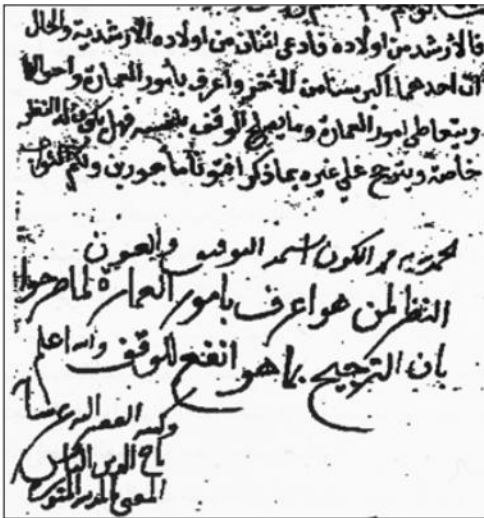 فالارشد من اولاده فادعى اثنان من اولاده الارشدية والحال
ان احدهما اكبر سنا من الاخر واعرف بامور العمارة واحوالها
ويتعاطى امور العمارة وما يصلح الوقف بنفسه فهل يكون له النظر
خاصة ويترجح على غيره بما ذكر افتونا مأجورين ولكم الثواب
الحمد لله ممد الكون استمد التوفيق والعون
النظر لمن هو اعرف بامور العمارة لما صرحوا
بان الترجيح بما هو انفع للوقف والله اعلم
وكتبه الفقير اليه عز شانه
تاج الدين الياس
المفتي بالمدينة المنورة